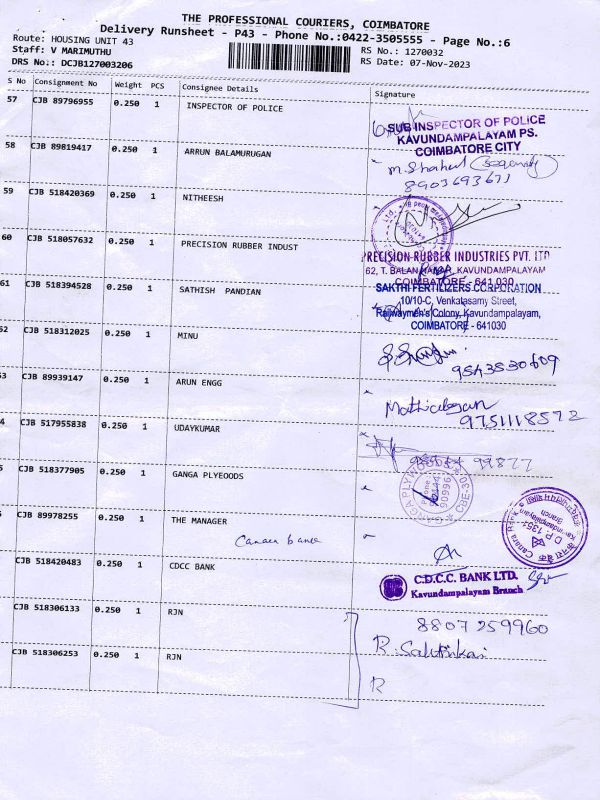 THE PROFESSIONAL COURIERS, COIMBATORE
Delivery Runsheet - P43 - Phone No.:0422-3505555 - Page No.:6
Route: HOUSING UNIT 43
Staff: V MARIMUTHU
DRS No.: DCJB127003206
RS No.: 1270032
RS Date: 07-Nov-2023
S No Consignment No Weight PCS Consignee Details Signature
57 CJB 89796955 0.250 1 INSPECTOR OF POLICE
SUB INSPECTOR OF POLICE
KAVUNDAMPALAYAM PS.
COIMBATORE CITY
58 CJB 89819417 0.250 1 ARRUN BALAMURUGAN
M. Shahul
8903693671
59 CJB 518420369 0.250 1 NITHEESH
60 CJB 518057632 0.250 1 PRECISION RUBBER INDUST
PRECISION RUBBER INDUSTRIES PVT. LTD
62, T. BALAN NAGAR, KAVUNDAMPALAYAM
COIMBATORE - 641 030
61 CJB 518394528 0.250 1 SATHISH PANDIAN
SAKTHI FERTILIZERS CORPORATION
10/10-C, Venkatasamy Street,
Railwaymen's Colony, Kavundampalayam,
COIMBATORE - 641030
52 CJB 518312025 0.250 1 MINU
9543530609
53 CJB 89939147 0.250 1 ARUN ENGG
Mathialagan
9751118572
4 CJB 517955838 0.250 1 UDAYKUMAR
99877
5 CJB 518377905 0.250 1 GANGA PLYEOODS
CJB 89978255 0.250 1 THE MANAGER
Canara bank
Canara Bank
D.P. 1351
Branch
CJB 518420483 0.250 1 CDCC BANK
C.D.C.C. BANK LTD.
Kavundampalayam Branch
CJB 518306133 0.250 1 RJN
8807259960
CJB 518306253 0.250 1 RJN
R